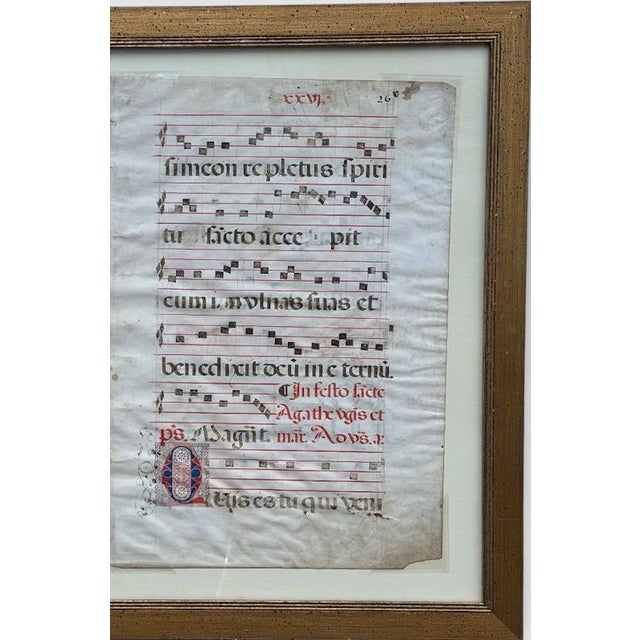 xxvj. 26
simeon repletus spiri
tu sācto acce pit
eum in vlnas suas et
benedixit deū in eternū.
¶ In festo sācte
Agathe v̄gīs et
ps̄. Magn̄t. mār̄. A ovs̄. a:
Quis es tu qui veni